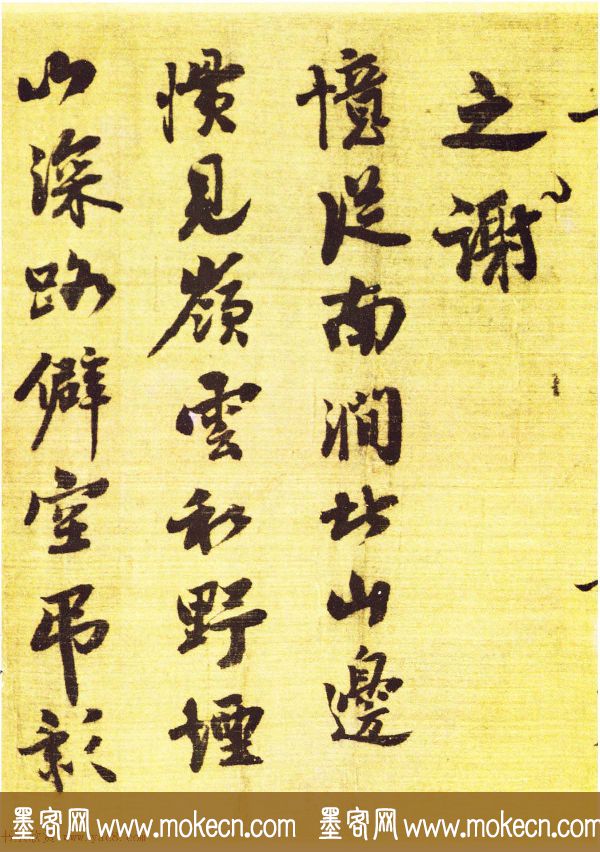 之謝
憶從南澗北山邊
慣見嶺雲和野煙
山深路僻空弔影
墨客网 www.mokecn.com 墨客网 www.mokecn.com